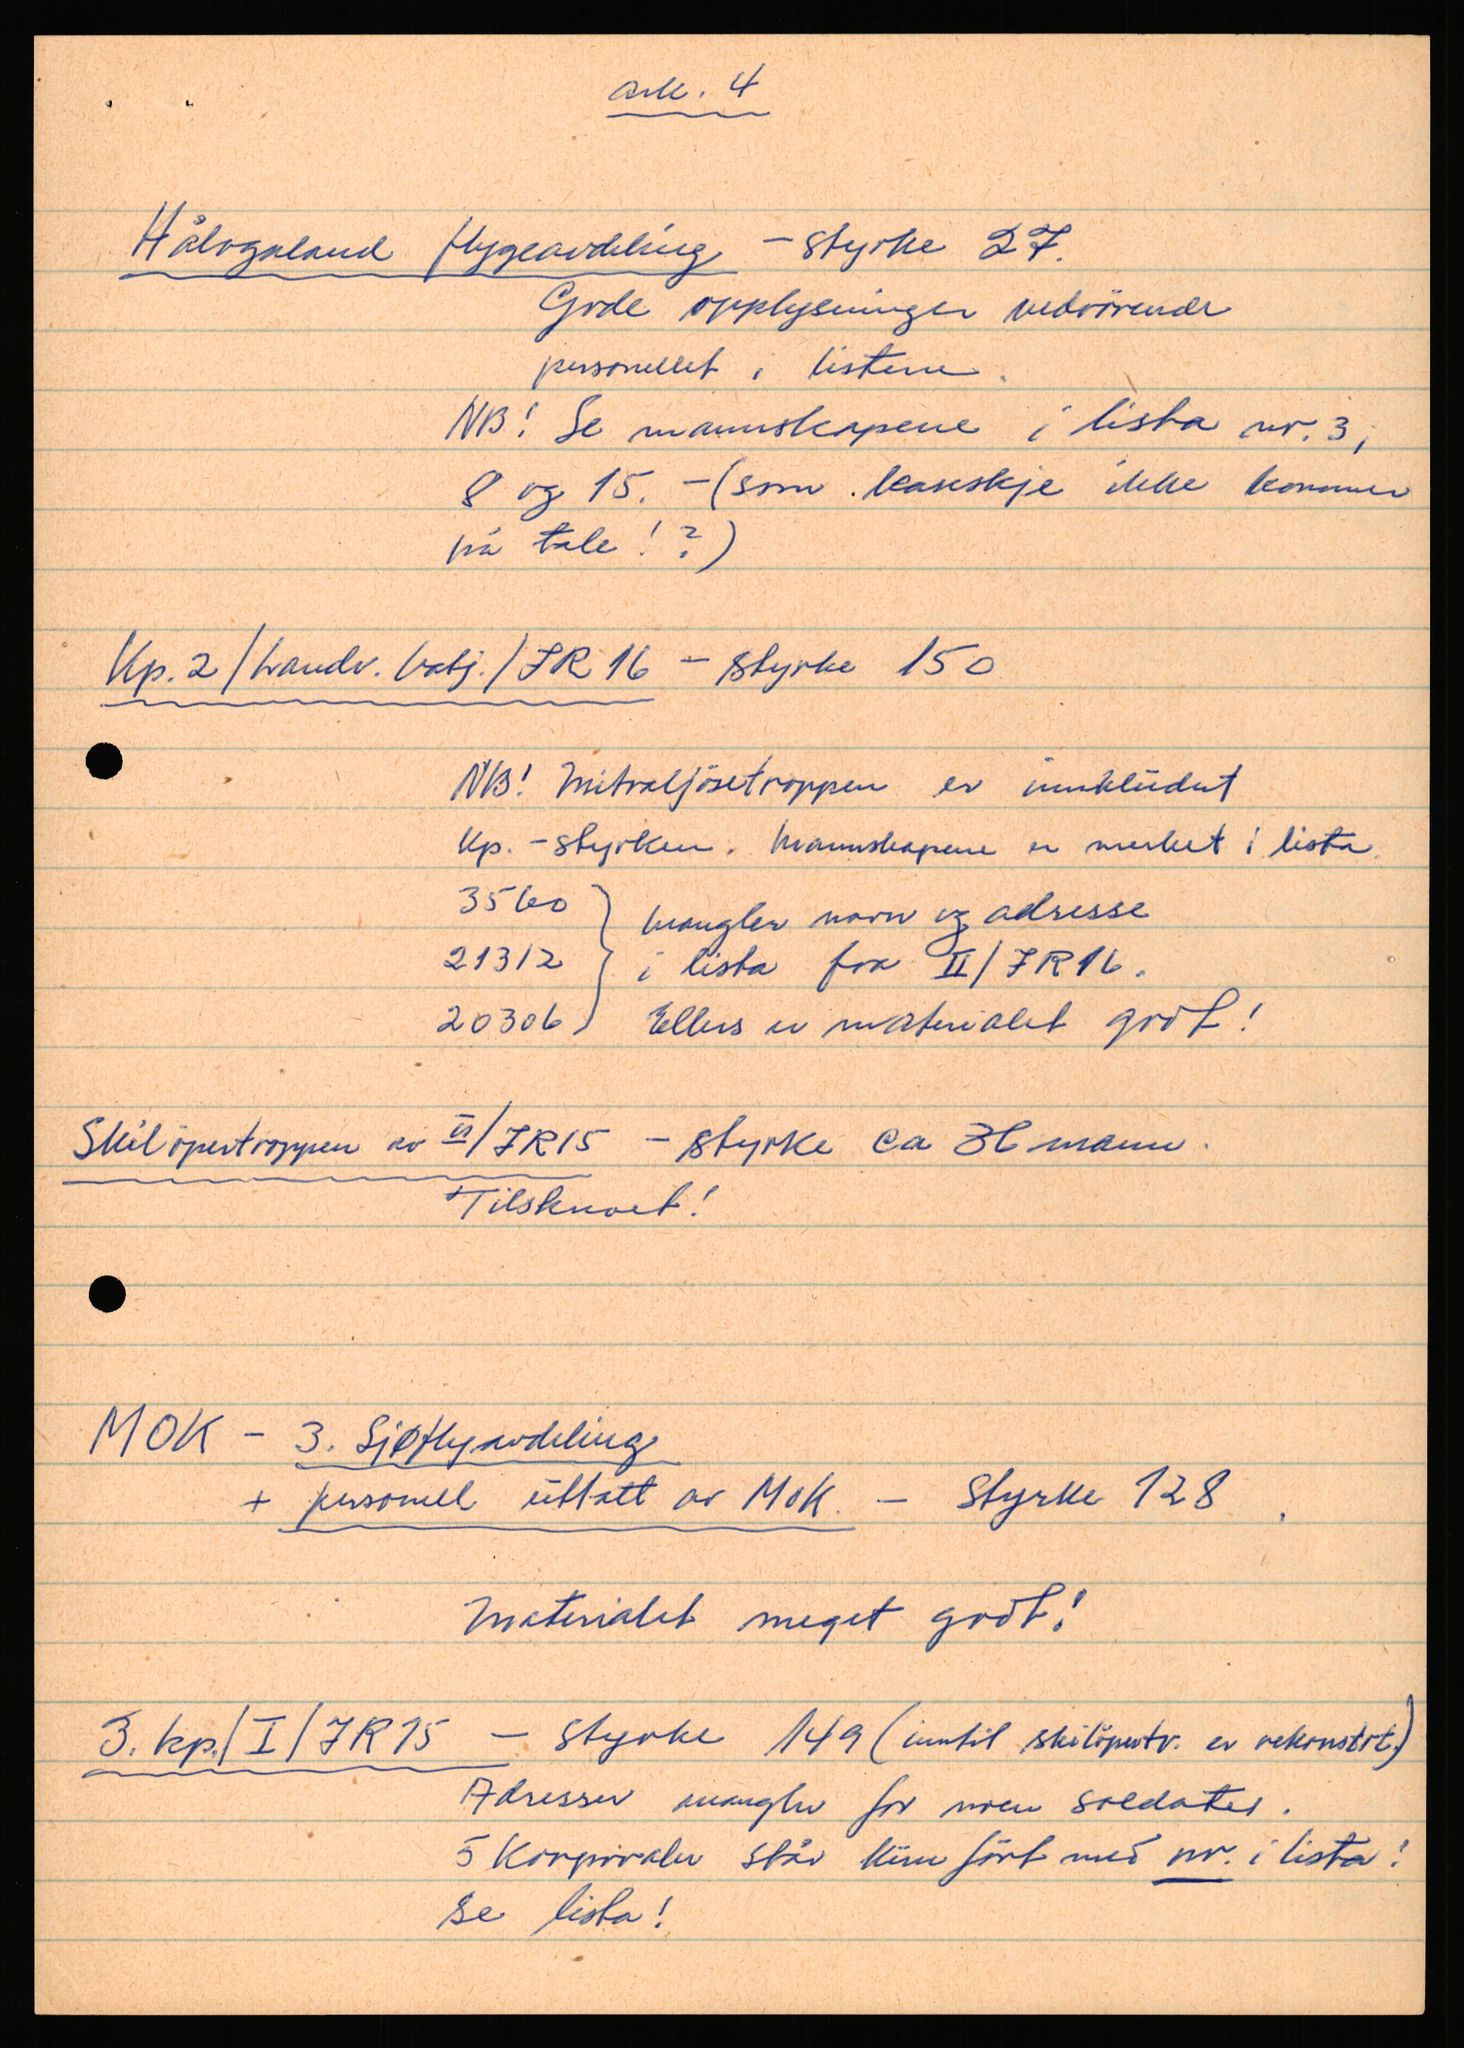 ark. 4
Hålogaland flygeavdeling - styrke 27.
Gode opplysninger vedrörende
personellet i listene.
NB! Se mannskapene i lista nr. 3,
8 og 15. - (som kanskje ikke kommer
på tale!?)
Kp. 2/Landv. batj./IR 16 - styrke 150
NB! Mitraljösetroppen er innkludert
Kp. - styrken. Mannskapene er merket i lista.
3560 } mangler navn og adresse
21312 } i lista fra II/IR16.
20306 } Ellers er materialet godt!
Skilöpertroppen av II/IR15 - styrke ca mann.
Tilskrevet!
MOK - 3. Sjøflyavdeling
+ personell uttatt av MOK. - Styrke 128.
Materialet meget godt!
3. kp./I/IR15 - styrke 149 (inntil skilöpertr. er rekonstrt.)
Adresser mangler for noen soldater.
5 Korporaler står kun fört med nr. i lista!
Se lista!